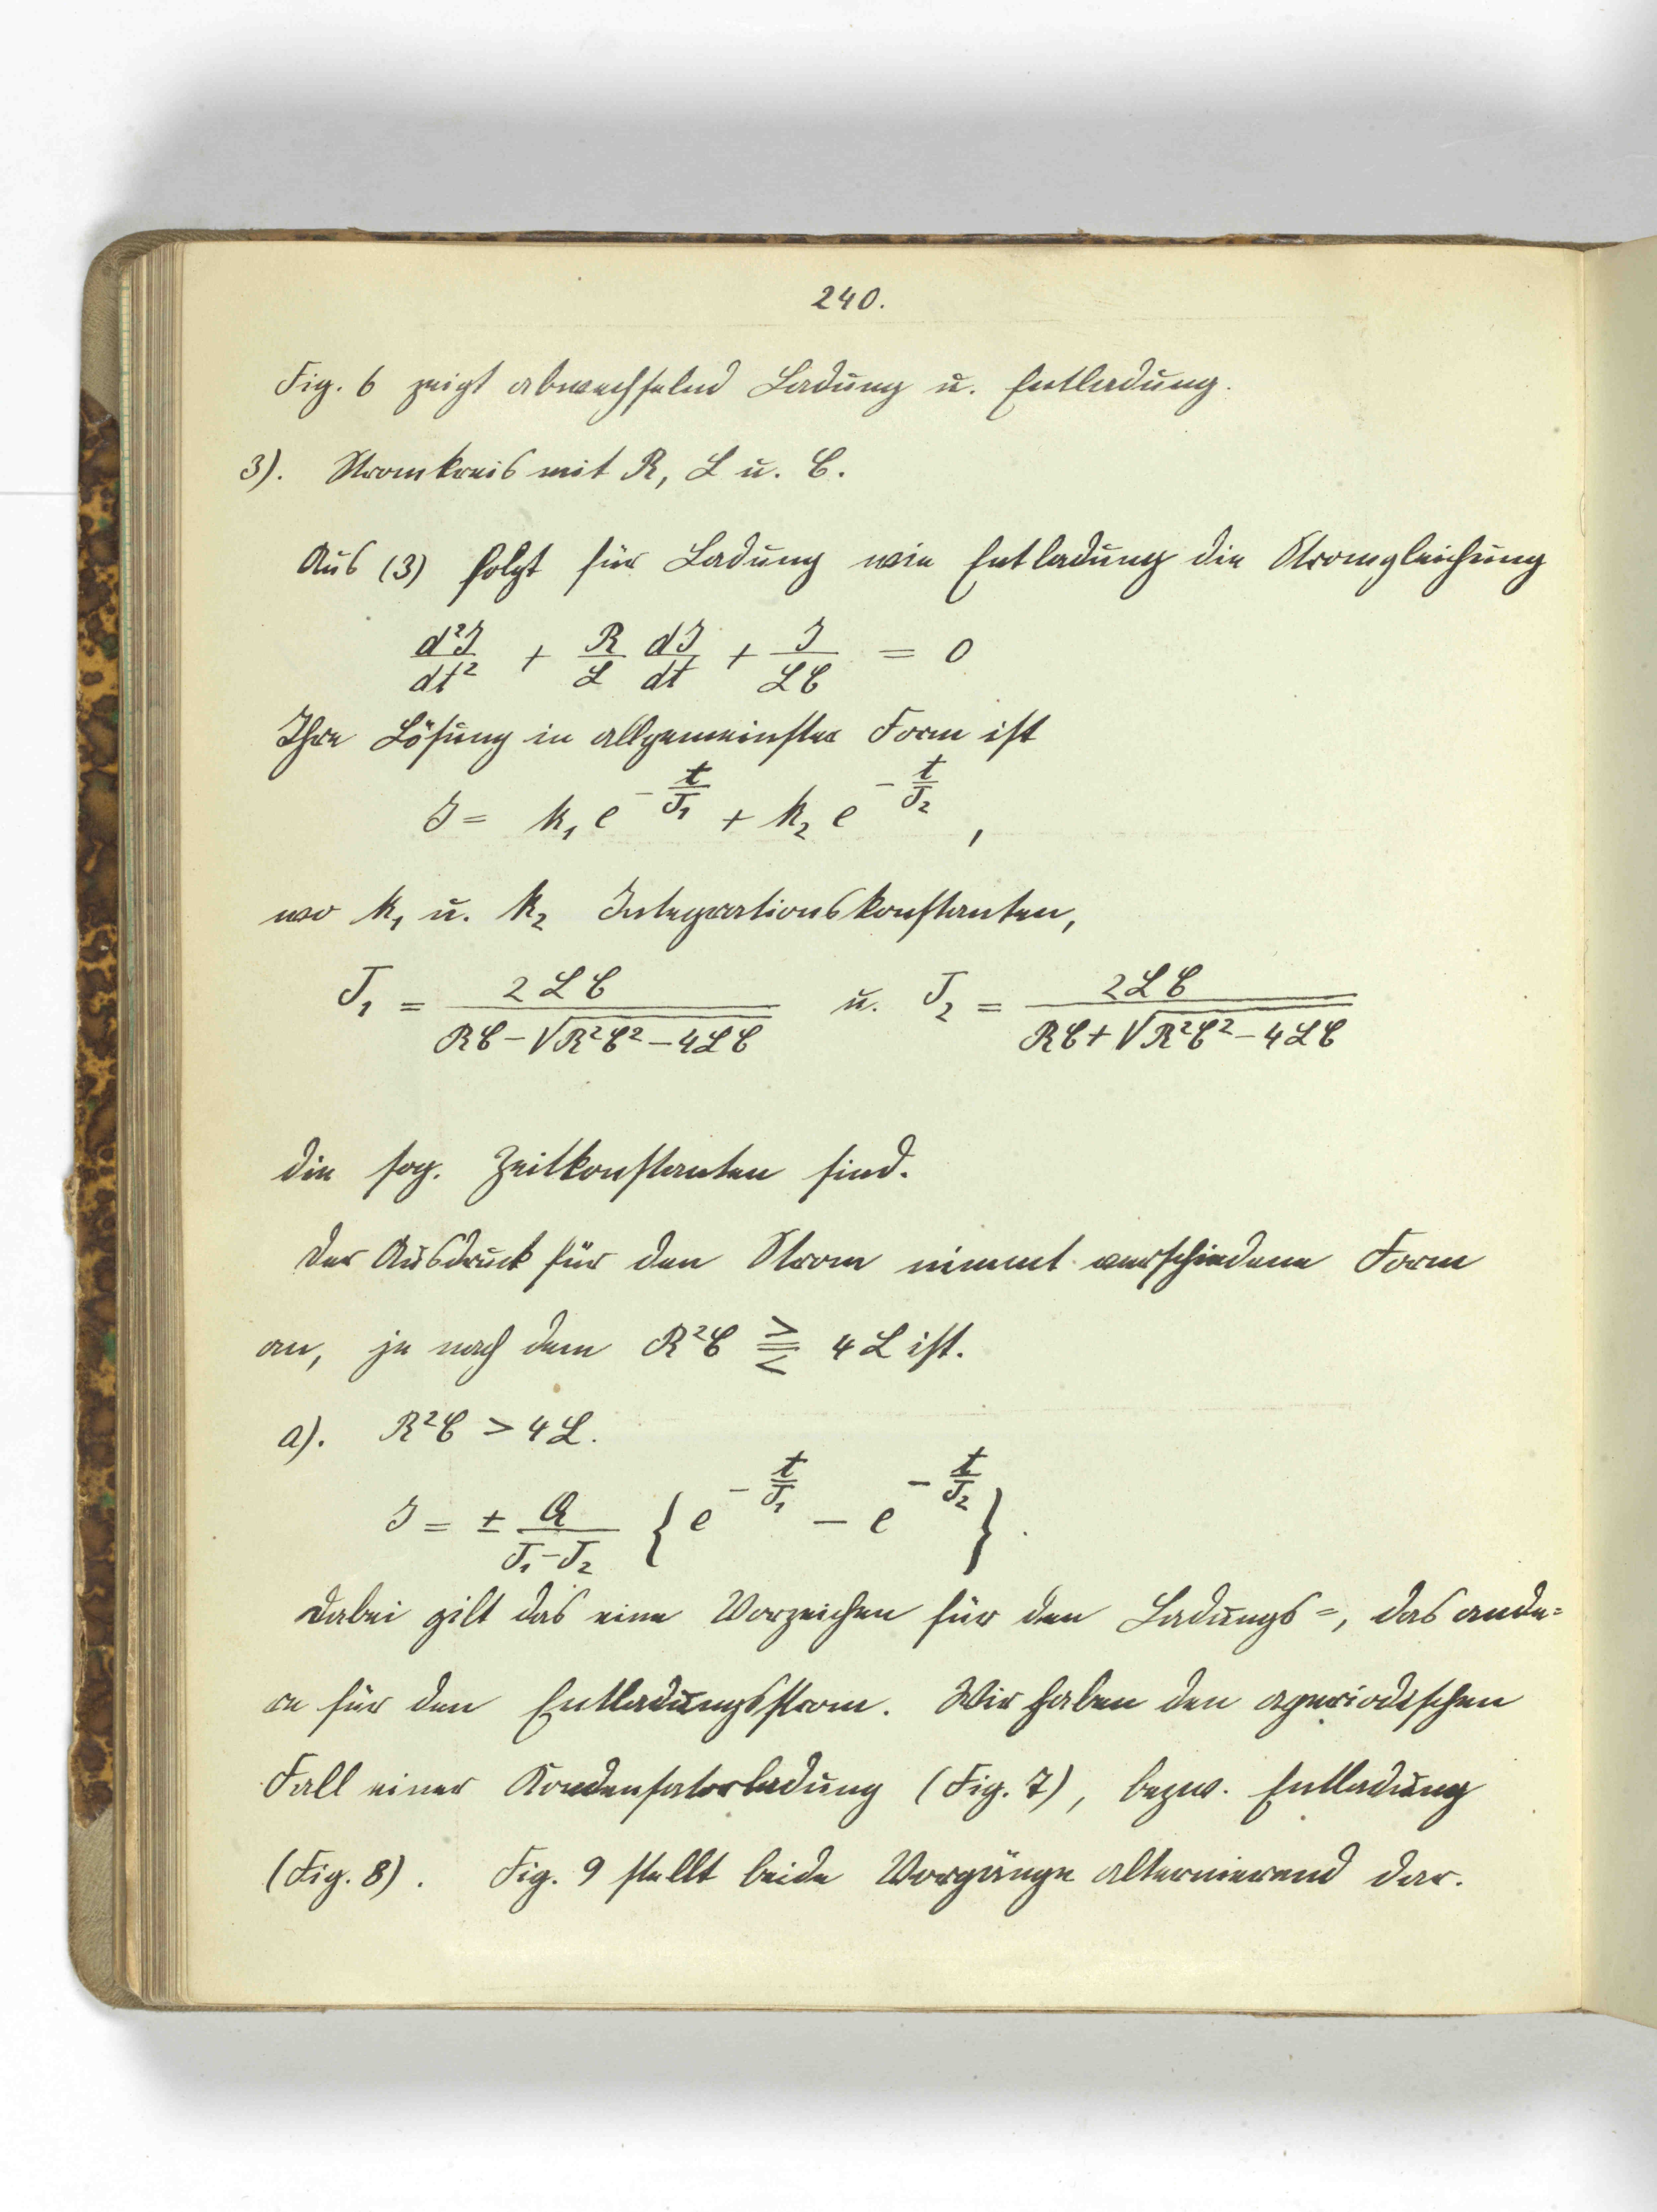 240.
Fig. 6 zeigt abwechselnd Ladung u. Entladung.
3). Stromkreis mit R, L u. C.
Aus (3) folgt für Ladung wie Entladung die Stromgleichung
d²J/dt² + R/L dJ/dt + J/LC = 0
Ihre Lösung in allgemeinster Form ist
J = k₁ e^(-t/T₁) + k₂ e^(-t/T₂),
wo k₁ u. k₂ Integrationskonstanten,
T₁ = 2LC/(RC-√(R²C²-4LC)) u. T₂ = 2LC/(RC+√(R²C²-4LC))
die sog. Zeitkonstanten sind.
Der Ausdruck für den Strom nimmt verschiedene Form
an, je nach dem R²C ⪌ 4L ist.
a). R²C > 4L.
J = ± Q/(T₁-T₂) {e^(-t/T₁) - e^(-t/T₂)}.
Dabei gilt das eine Vorzeichen für den Ladungs=, das ande=
re für den Entladungsstrom. Wir haben den aperiodischen
Fall einer Kondensatorladung (Fig. 7), bezw. Entladung
(Fig. 8). Fig. 9 stellt beide Vorgänge alternierend dar.